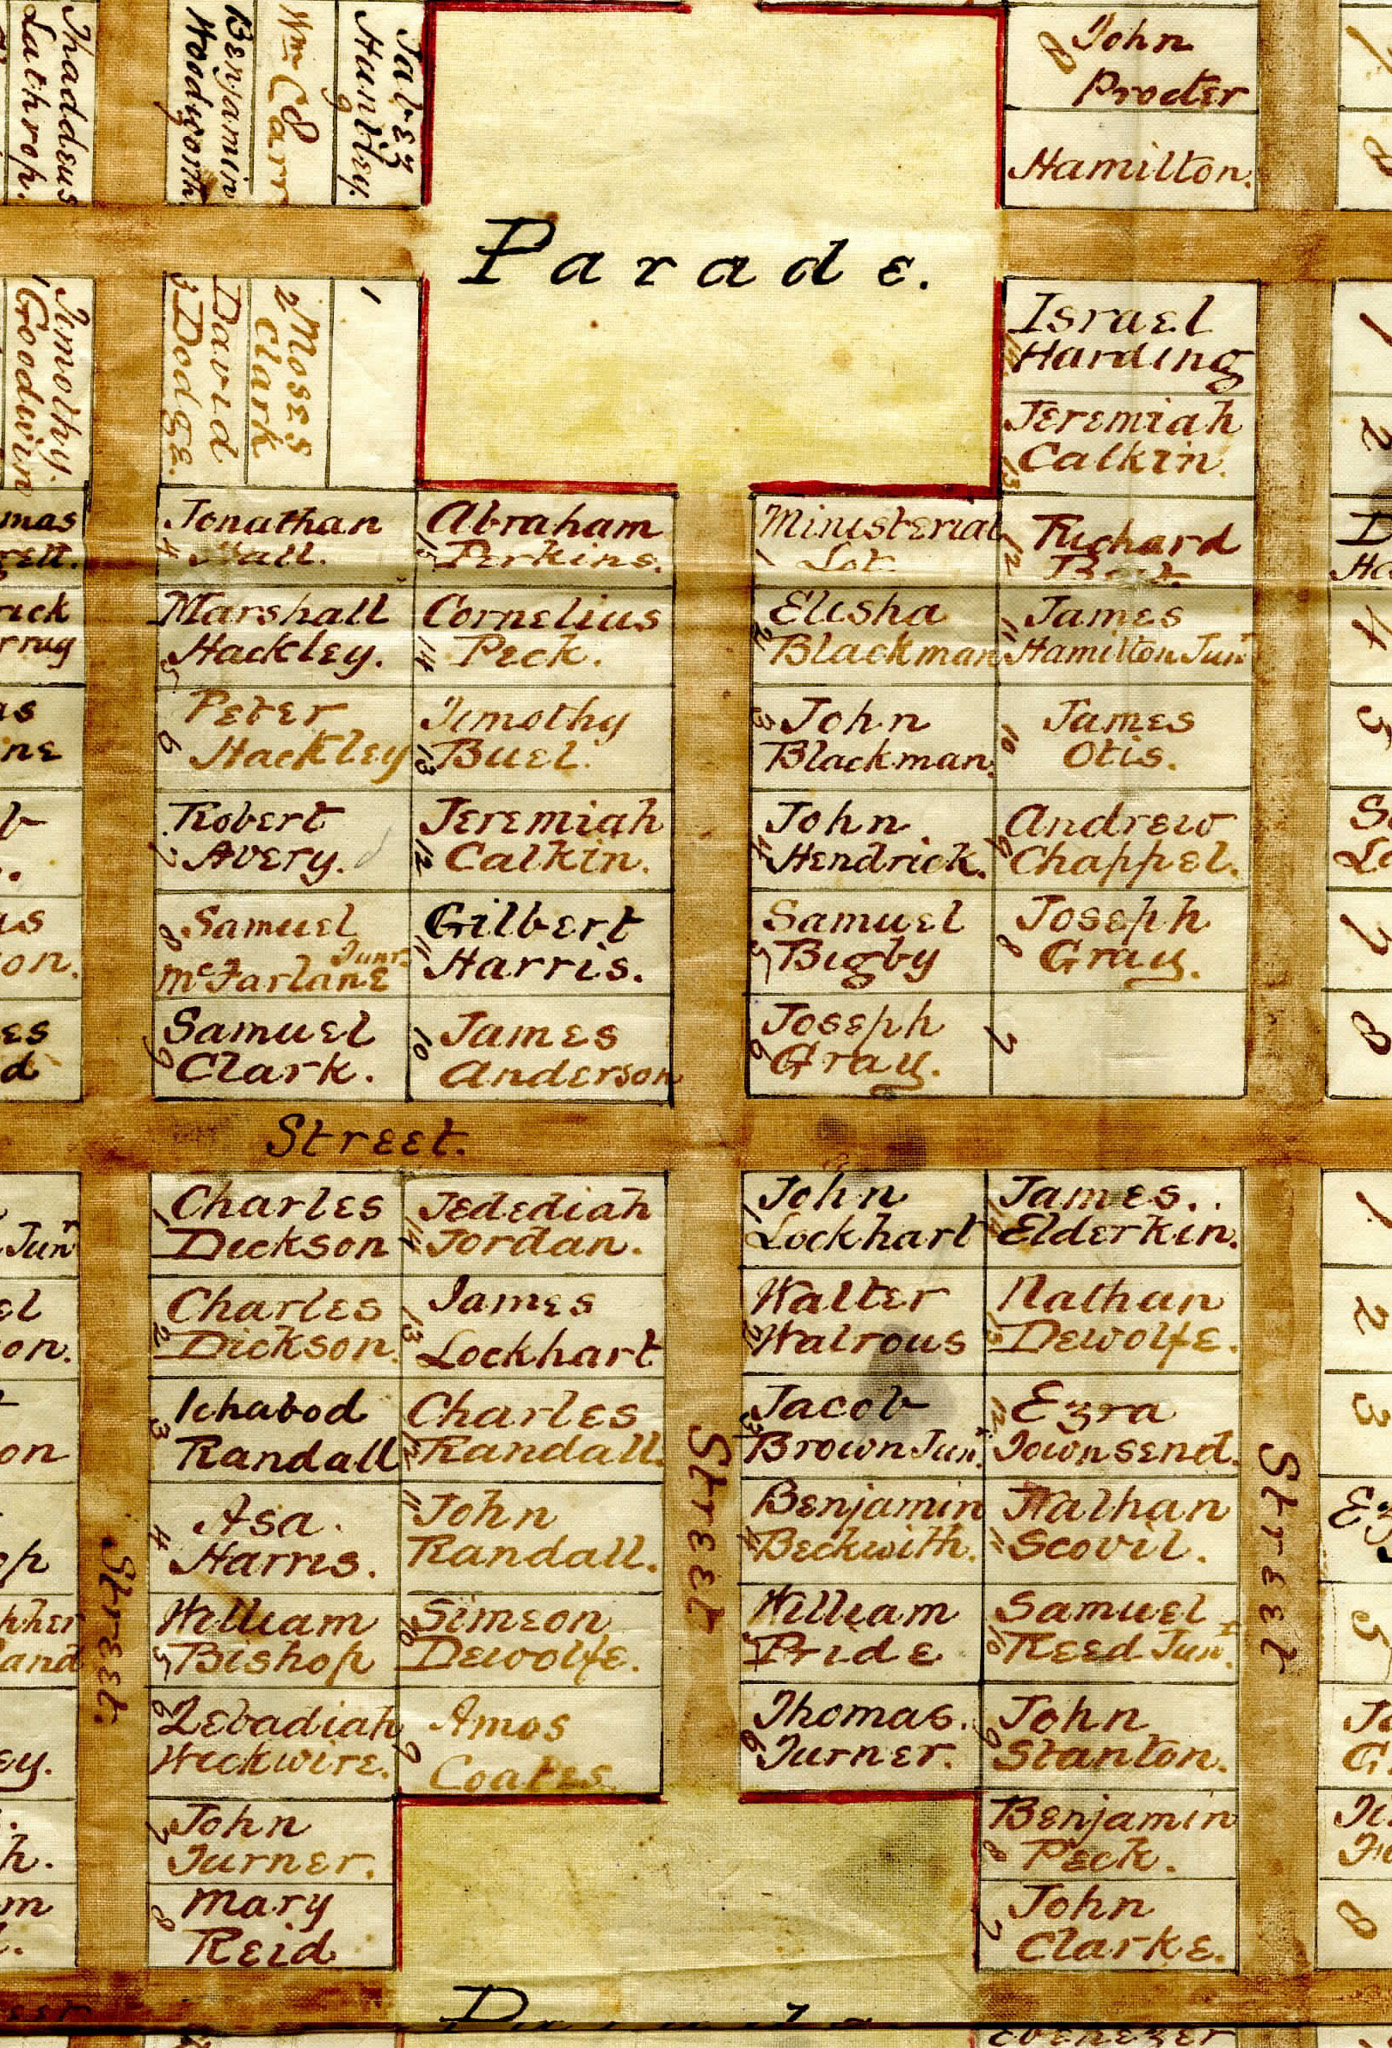 Thaddeus
Lathrop.
Benjamin
Woodworth.
Wm Carr
8
Jabez
Huntley.
9
8 John
Procter
Hamilton.
8
Parade.
1 Timothy.
Goodwin
3 David
Dodge.
2 Moses
Clark
1
Israel
14 Harding
Jeremiah
13 Calkin.
1
2
Jonathan
4 Hall.
Abraham
15 Perkins.
Ministerial
1 Lot
Richard
12 Best.
Marshall
5 Hackley.
Cornelius
14 Peck.
Elisha
2 Blackman
James
11 Hamilton Junr
4
Peter
6 Hackley
Timothy
13 Buel.
3 John
Blackman.
James
10 Otis.
5
Robert
7 Avery.
Jeremiah
12 Calkin.
John
4 Hendrick.
Andrew
9 Chappel.
8 Samuel
McFarlane Junr.
Gilbert
11 Harris.
Samuel
5 Bigby
Joseph
8 Gray.
7
Samuel
9 Clark.
James
10 Anderson
Joseph
6 Gray.
7
8
Street.
Charles
1 Dickson
Jedediah
14 Jordan.
John
1 Lockhart
James..
14 Elderkin.
1
Junr
Charles
2 Dickson.
James
13 Lockhart
Walter
2 Walrous
Nathan
13 Dewolfe.
2
Ichabod
3 Randall
Charles
12 Randall.
Jacob
3 Brown Junr.
12 Ezra
Townsend.
3
Street
Street
Asa.
4 Harris.
11 John
Randall.
Benjamin
4 Beckwith.
Nathan
11 Scovil.
Street.
William
5 Bishop
Simeon
10 Dewolfe.
William
5 Pride
Samuel
10 Reed Junr.
5
6 Zebadiah
Wickwire.
Amos
9 Coates.
Thomas.
6 Turner.
John
9 Stanton.
7 John
Turner.
Benjamin
8 Peck.
Mary
8 Reid
John
7 Clarke.
8
Parade
Ebenezer